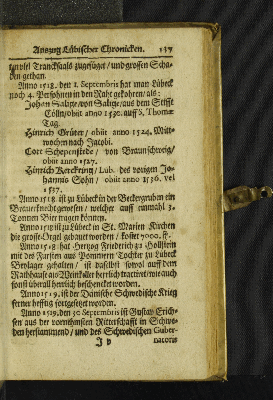 Auszug Lübischer Chronicken. 137
zu viel Trancksaals zugefüget / und grossen Scha-
den gethan.
Anno 1518. den 1. Septembris hat man Lübeck
noch 4. Persohnen in den Raht gekohren / als:
Johan Saltze / von Saltze / aus dem Stifft
Cölln / obiit anno 1530. auff S. Thomæ
Tag.
Hinrich Grüter / obiit anno 1524. Mitt-
wochen nach Jacobi.
Cort Schepenstede / von Braunschweig /
obiit anno 1527.
Hinrich Kerckring / Lub. des vorigen Jo-
hannis Sohn / obiit anno 1536. vel
1537.
Anno 1518. ist zu Lübeck in der Beckergruben ein
Brauerknecht gewesen / welcher auff einmahl 3.
Tonnen Bier tragen können.
Anno 1518. ist zu Lübeck in St. Marien Kirchen
die grosse Orgel gebauet worden / kostet
Anno 1518. hat Hertzog Friederich zu Hollstein
mit des Fürsten aus Pommern Tochter zu Lübeck
Beylager gehalten / ist daselbst sowol auff dem
Rathhause als Weinkeller herrlich tractiret wie auch
sonst überall herrlich beschencket worden.
Anno 1519. ist der Dänische Schwedische Krieg
ferner hefftig fortgesetzet worden.
Anno 1519. den 30. Septembris ist Gustav Erich-
sen aus der vornehmsten Ritterschafft in Schwe-
den herstammend / und des Schwedischen Guber-
natoris